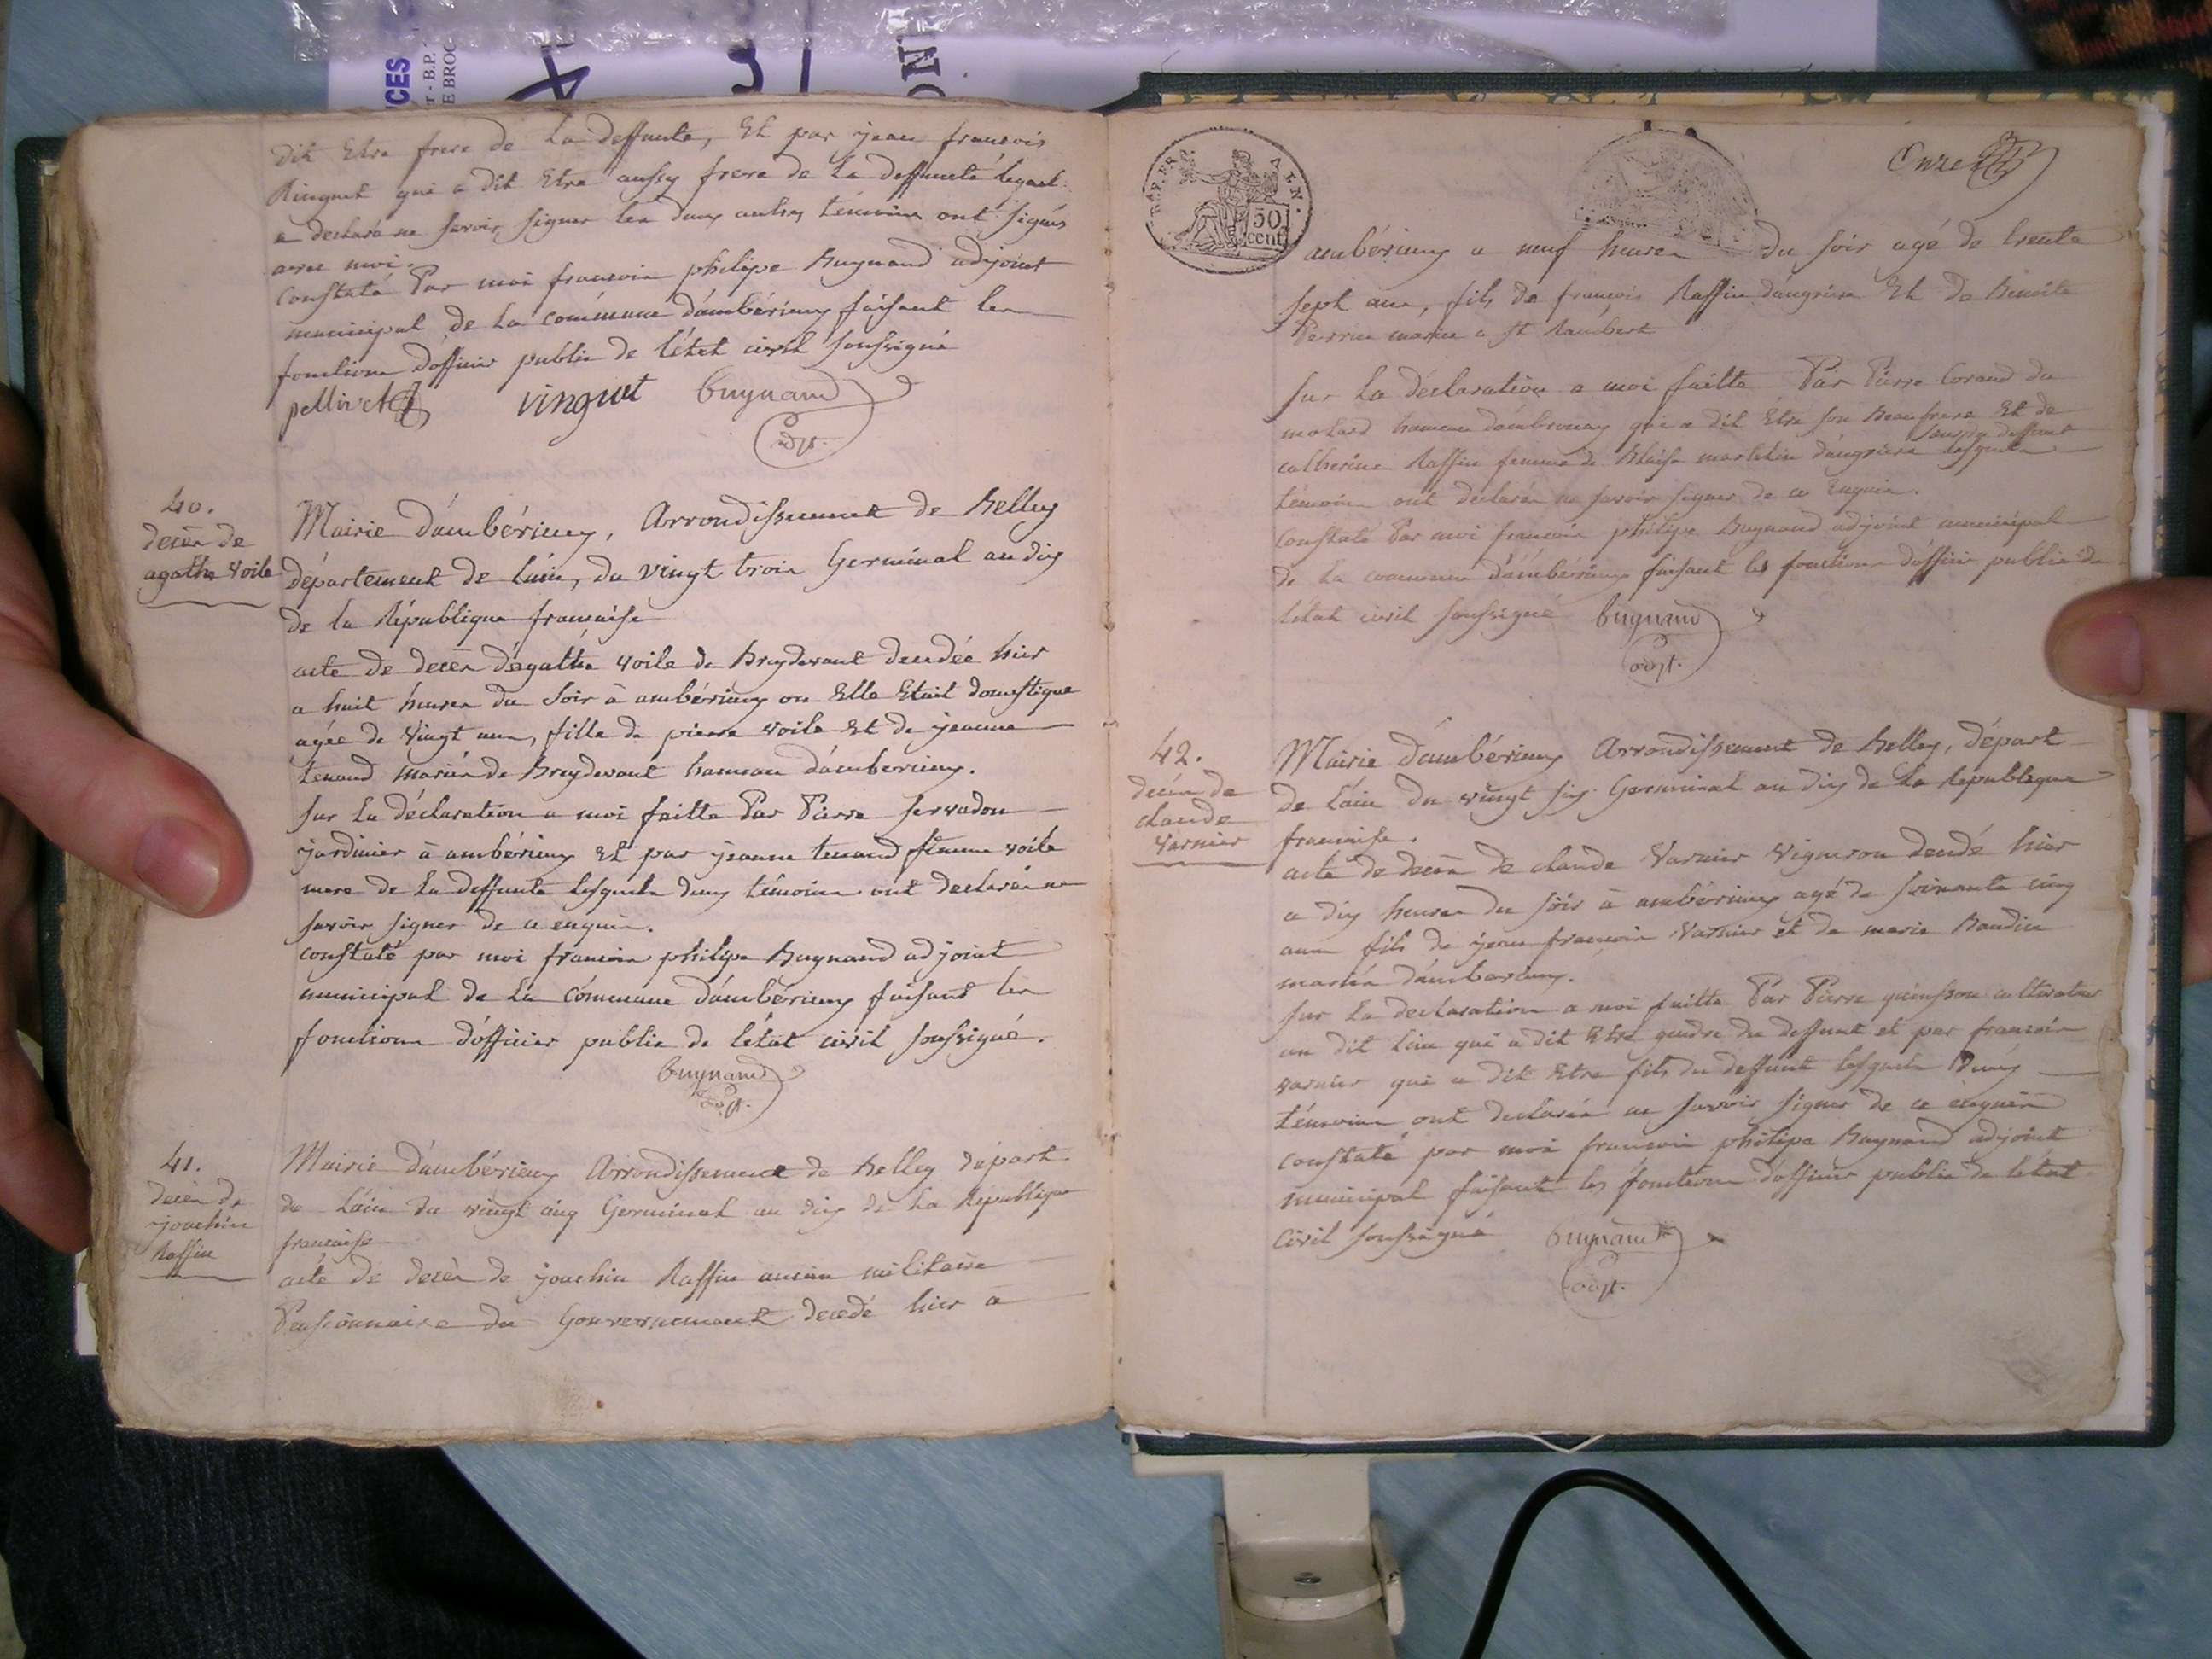 CES
r - B.P.
E BROC
ON
dit Etre frere de La deffunte, Et par jean francois
Ringuet qui a dit Etre aussy frere de La deffuncte lequel
a declaré ne savoir signer les deux autres témoins ont signés
avec moi.
Constaté Par moi francois philipe Bugnand adjoint
municipal de La cómmune d'ambérieux faisant les
fonctions dofficier public de l'état civil soussigné
pellivet vinguet Bugnand
adjt.
40.
décès de
agathe voile
Mairie d'ambérieux, Arrondissement de Belley
département de L'ain, du vingt trois Germinal an dix
de la République française
acte de décès d'agathe voile de Breydevent decédée hier
a huit heures du soir à ambérieux ou Elle Etait domestique
agée de vingt ans, fille de pierre voile Et de jeanne
tenand mariés de Breydevent hameau d'amberieux.
sur La déclaration a moi faitte Par Pierre servadon
jardinier à ambérieux Et par jeanne tenand femme voile
mere de La deffunte lesquels deux témoins ont declarés ne
savoir signer de ce enquis.
constaté par moi francois philipe Bugnand adjoint
municipal de La cómmune d'ambérieux faisant les
fonctions d'officier public de l'état civil soussigné.
Bugnand
adjt.
41.
décès de
joachin
Raffin
Mairie d'ambérieux Arrondissement de Belley départ
de L'ain du vingt cinq Germinal an dix de La République
française
acte de decès de joachin Raffin ancien militaire
Pensionnaire du Gouvernement decedé hier a
RÉP. FRA.
50
cent
Onze
ambérieux a neuf heures du soir agé de trente
sept ans, fils de francois Raffin d'angrière Et de Benoite
Perrin mariés a st Rambert
sur La déclaration a moi faitte Par Pierre Corand du
molard hameau d'ambronay qui a dit Etre son Beaufrere Et de
catherine Raffin femme de Blaise d'angriere lesquels
témoins ont declarés ne savoir signer de ce Enquis.
constaté Par moi francois philipe Bugnand adjoint municipal
de La commune d'ambérieux faisant les fonctions d'officier public de
l'état civil soussigné Bugnand
adjt.
42.
décès de
claude
varnier
Mairie d'ambérieux Arrondissement de Belley, départ
de L'ain du vingt six Germinal an dix de La République
française.
acte de decès de claude varnier vigneron decedé hier
a dix heures du soir à ambérieux agé de soixante cinq
ans fils de jean francois varnier et de marie Baudin
mariés d'amberieux.
sur La declaration a moi faitte Par Pierre cultivateur
au dit lieu qui a dit Etre gendre du deffunt et par francois
varnier qui a dit Etre fils du deffunt lesquels Deux
témoins ont declarés ne savoir signer de ce enquis
constaté par moi francois philipe Bugnand adjoint
municipal faisant les fonctions d'officier public de l'état
civil soussigné Bugnand
adjt.